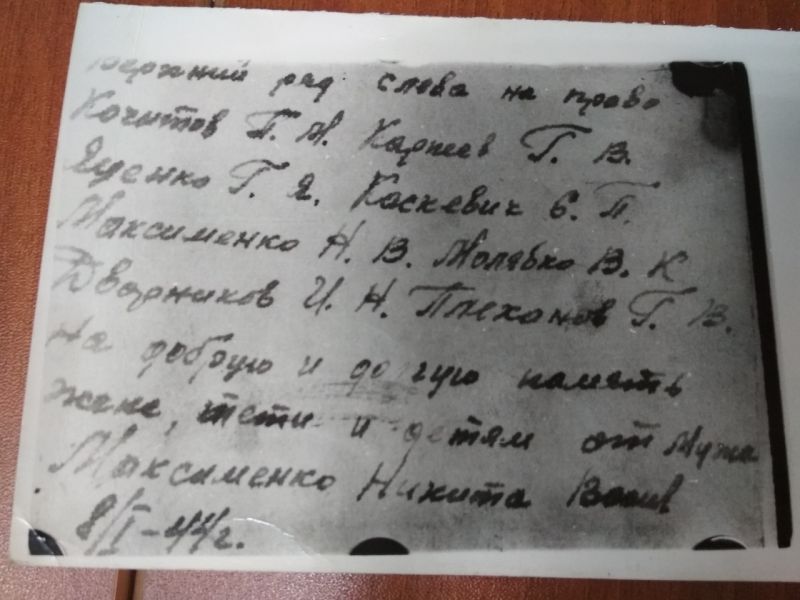 Верхний ряд слева на право
Кочытов П. М. Каржев Г. В.
Яценко Г. Я. Коскевич Е. П.
Максименко Н. В. Молявко В. К
Дворников И. Н. Плеханов Г. В.
На добрую и долгую память
жене, тети и детям от мужа
Максименко Никита Васил
8/I-44г.